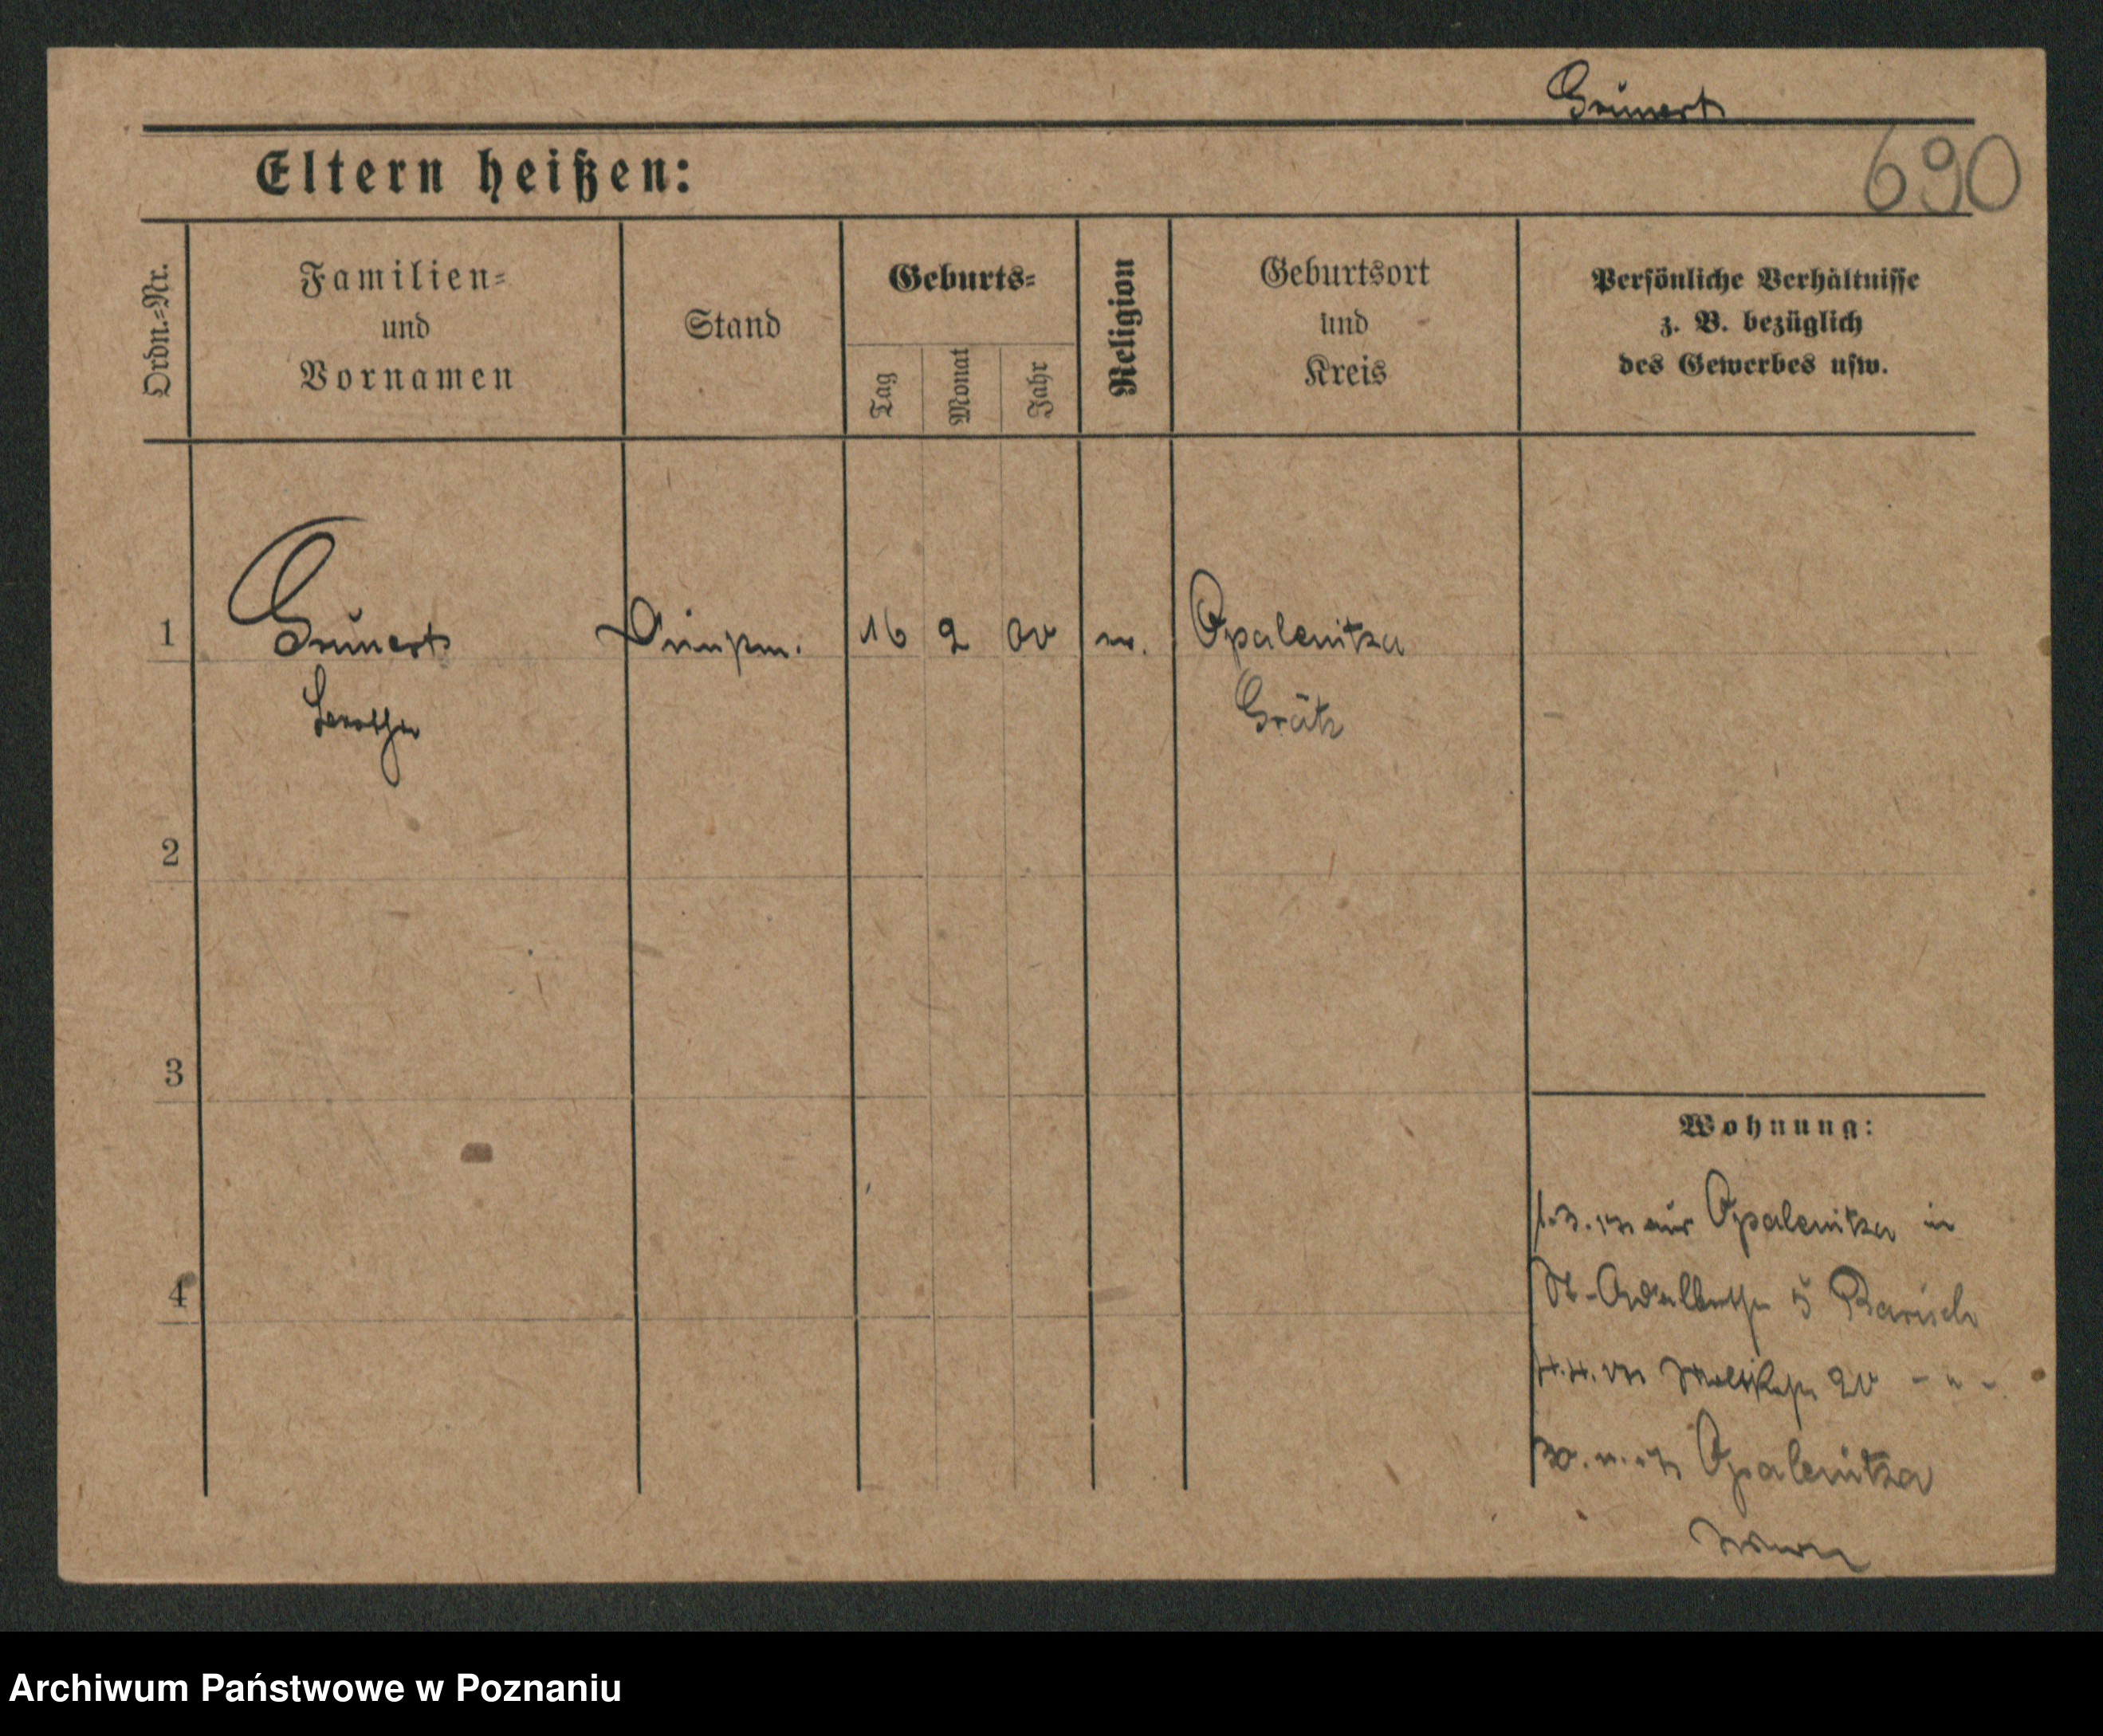 Grünert
690
Eltern heißen:
Ordn.-Nr.
Familien-
und
Vornamen
Stand
Geburts-
Tag
Monat
Jahr
Religion
Geburtsort
und
Kreis
Persönliche Verhältnisse
z. B. bezüglich
des Gewerbes usw.
1 Grünert 16 2 00 Opalenitza
Grätz
2
3
Wohnung:
aus Opalenitza in
St. Adalbertstr 5
4
Moltkestr 20 - " -
Opalenitza
Archiwum Państwowe w Poznaniu